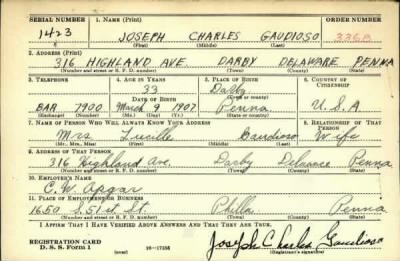 SERIAL NUMBER 1. NAME (Print) ORDER NUMBER
1423 JOSEPH CHARLES GAUDIOSO 336A
(First) (Middle) (Last)
2. ADDRESS (Print)
316 HIGHLAND AVE. DARBY DELAWARE PENNA
(Number and street or R. F. D. number) (Town) (County) (State)
3. TELEPHONE 4. AGE IN YEARS 5. PLACE OF BIRTH 6. COUNTRY OF CITIZENSHIP
33 Darby
DATE OF BIRTH (Town or county)
BAR. 7900 March 9 1907 Penna U.S.A
(Exchange) (Number) (Mo.) (Day) (Yr.) (State or country)
7. NAME OF PERSON WHO WILL ALWAYS KNOW YOUR ADDRESS 8. RELATIONSHIP OF THAT PERSON
Mrs Lucille Gaudioso Wife
(Mr., Mrs., Miss) (First) (Middle) (Last)
9. ADDRESS OF THAT PERSON
316 Highland Ave. Darby Penna
(Number and street or R. F. D. number) (Town) (County) (State)
10. EMPLOYER'S NAME
C. W. Apgar
11. PLACE OF EMPLOYMENT OR BUSINESS
1650 S. 51st St. Phila Penna
(Number and street or R. F. D. number) (Town) (County) (State)
I AFFIRM THAT I HAVE VERIFIED ABOVE ANSWERS AND THAT THEY ARE TRUE.
REGISTRATION CARD
D. S. S. Form 1 (over) Joseph Charles Gaudioso
(Registrant's signature)